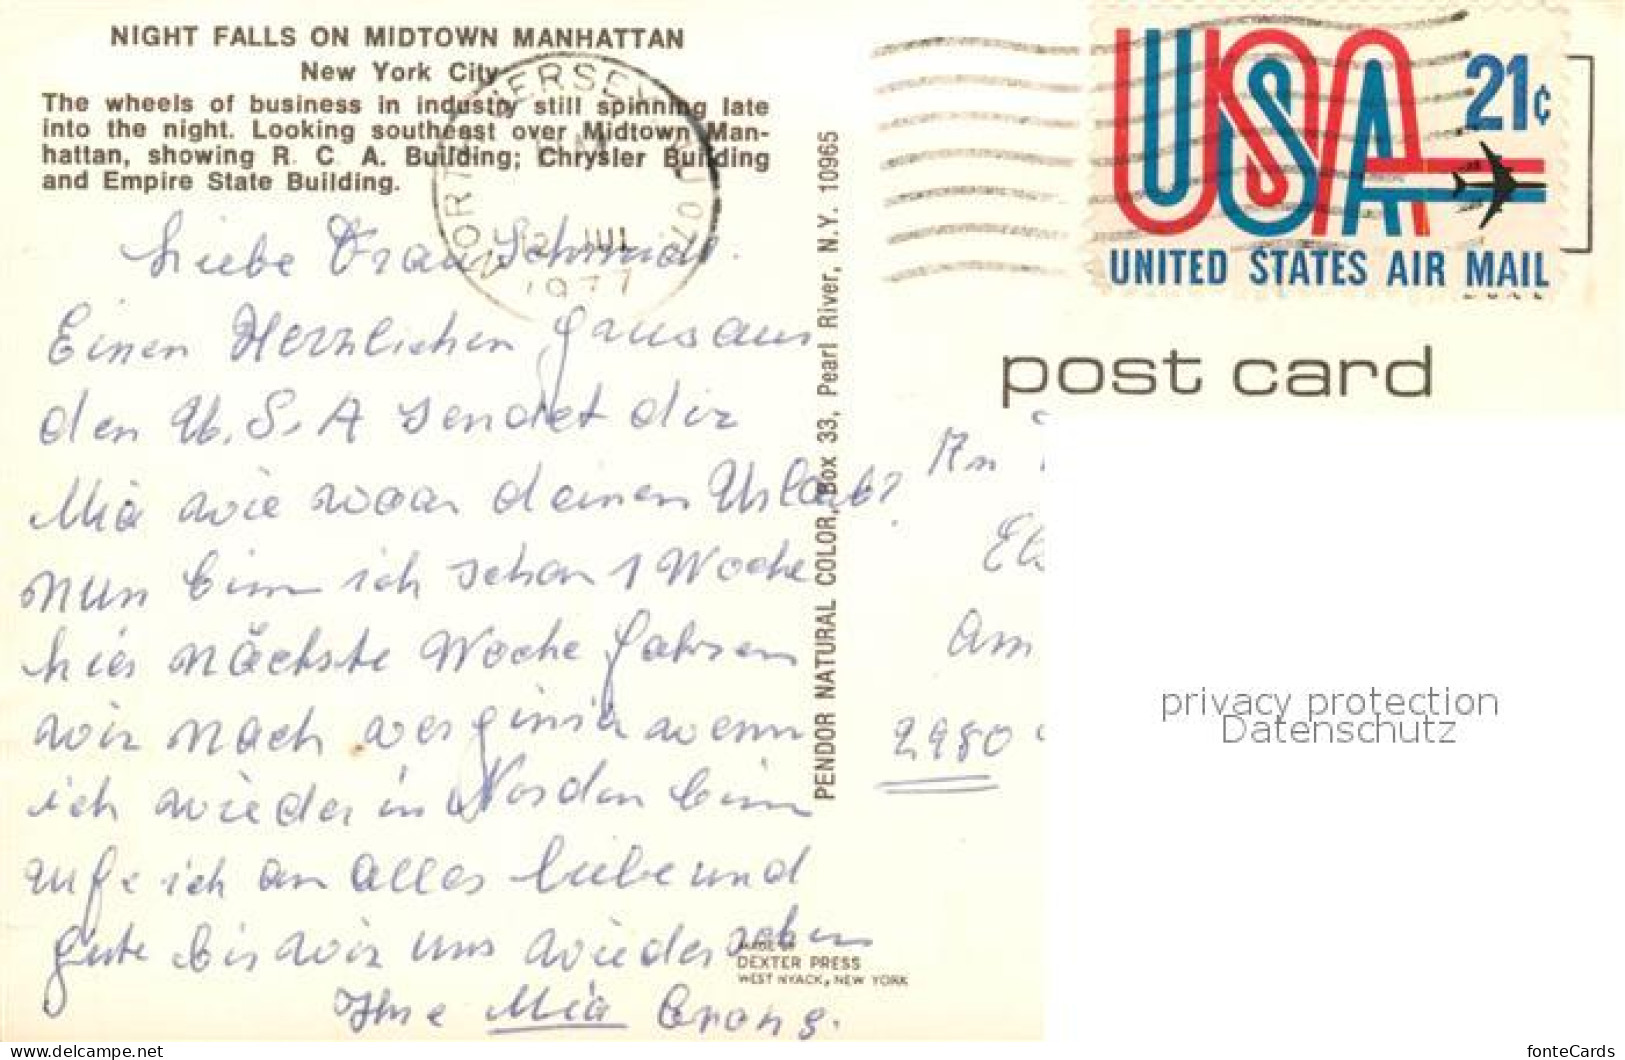 NIGHT FALLS ON MIDTOWN MANHATTAN
New York City
The wheels of business in industry still spinning late
into the night. Looking southeast over Midtown Man-
hattan, showing R. C. A. Building; Chrysler Building
and Empire State Building.
JERSEY
PM
12 JUL
1977
USA 21¢
UNITED STATES AIR MAIL
post card
Liebe Frau Schmidt.
Einen Herzlichen Grus aus
den U.S.A sendet dir
Mia wie war deinen Urlaub?
nun binn ich schon 1 Woche
hier nächste Woche fahren
wir nach verginia wenn
ich wieder in Norden binn
rufe ich an alles liebe und
gute bis wir uns wieder sehen
Ihre Mia
An
Am
2980
PENDOR NATURAL COLOR, Box 33, Pearl River, N.Y. 10965
MADE BY
DEXTER PRESS
WEST NYACK, NEW YORK
privacy protection
Datenschutz
www.delcampe.net
fonteCards